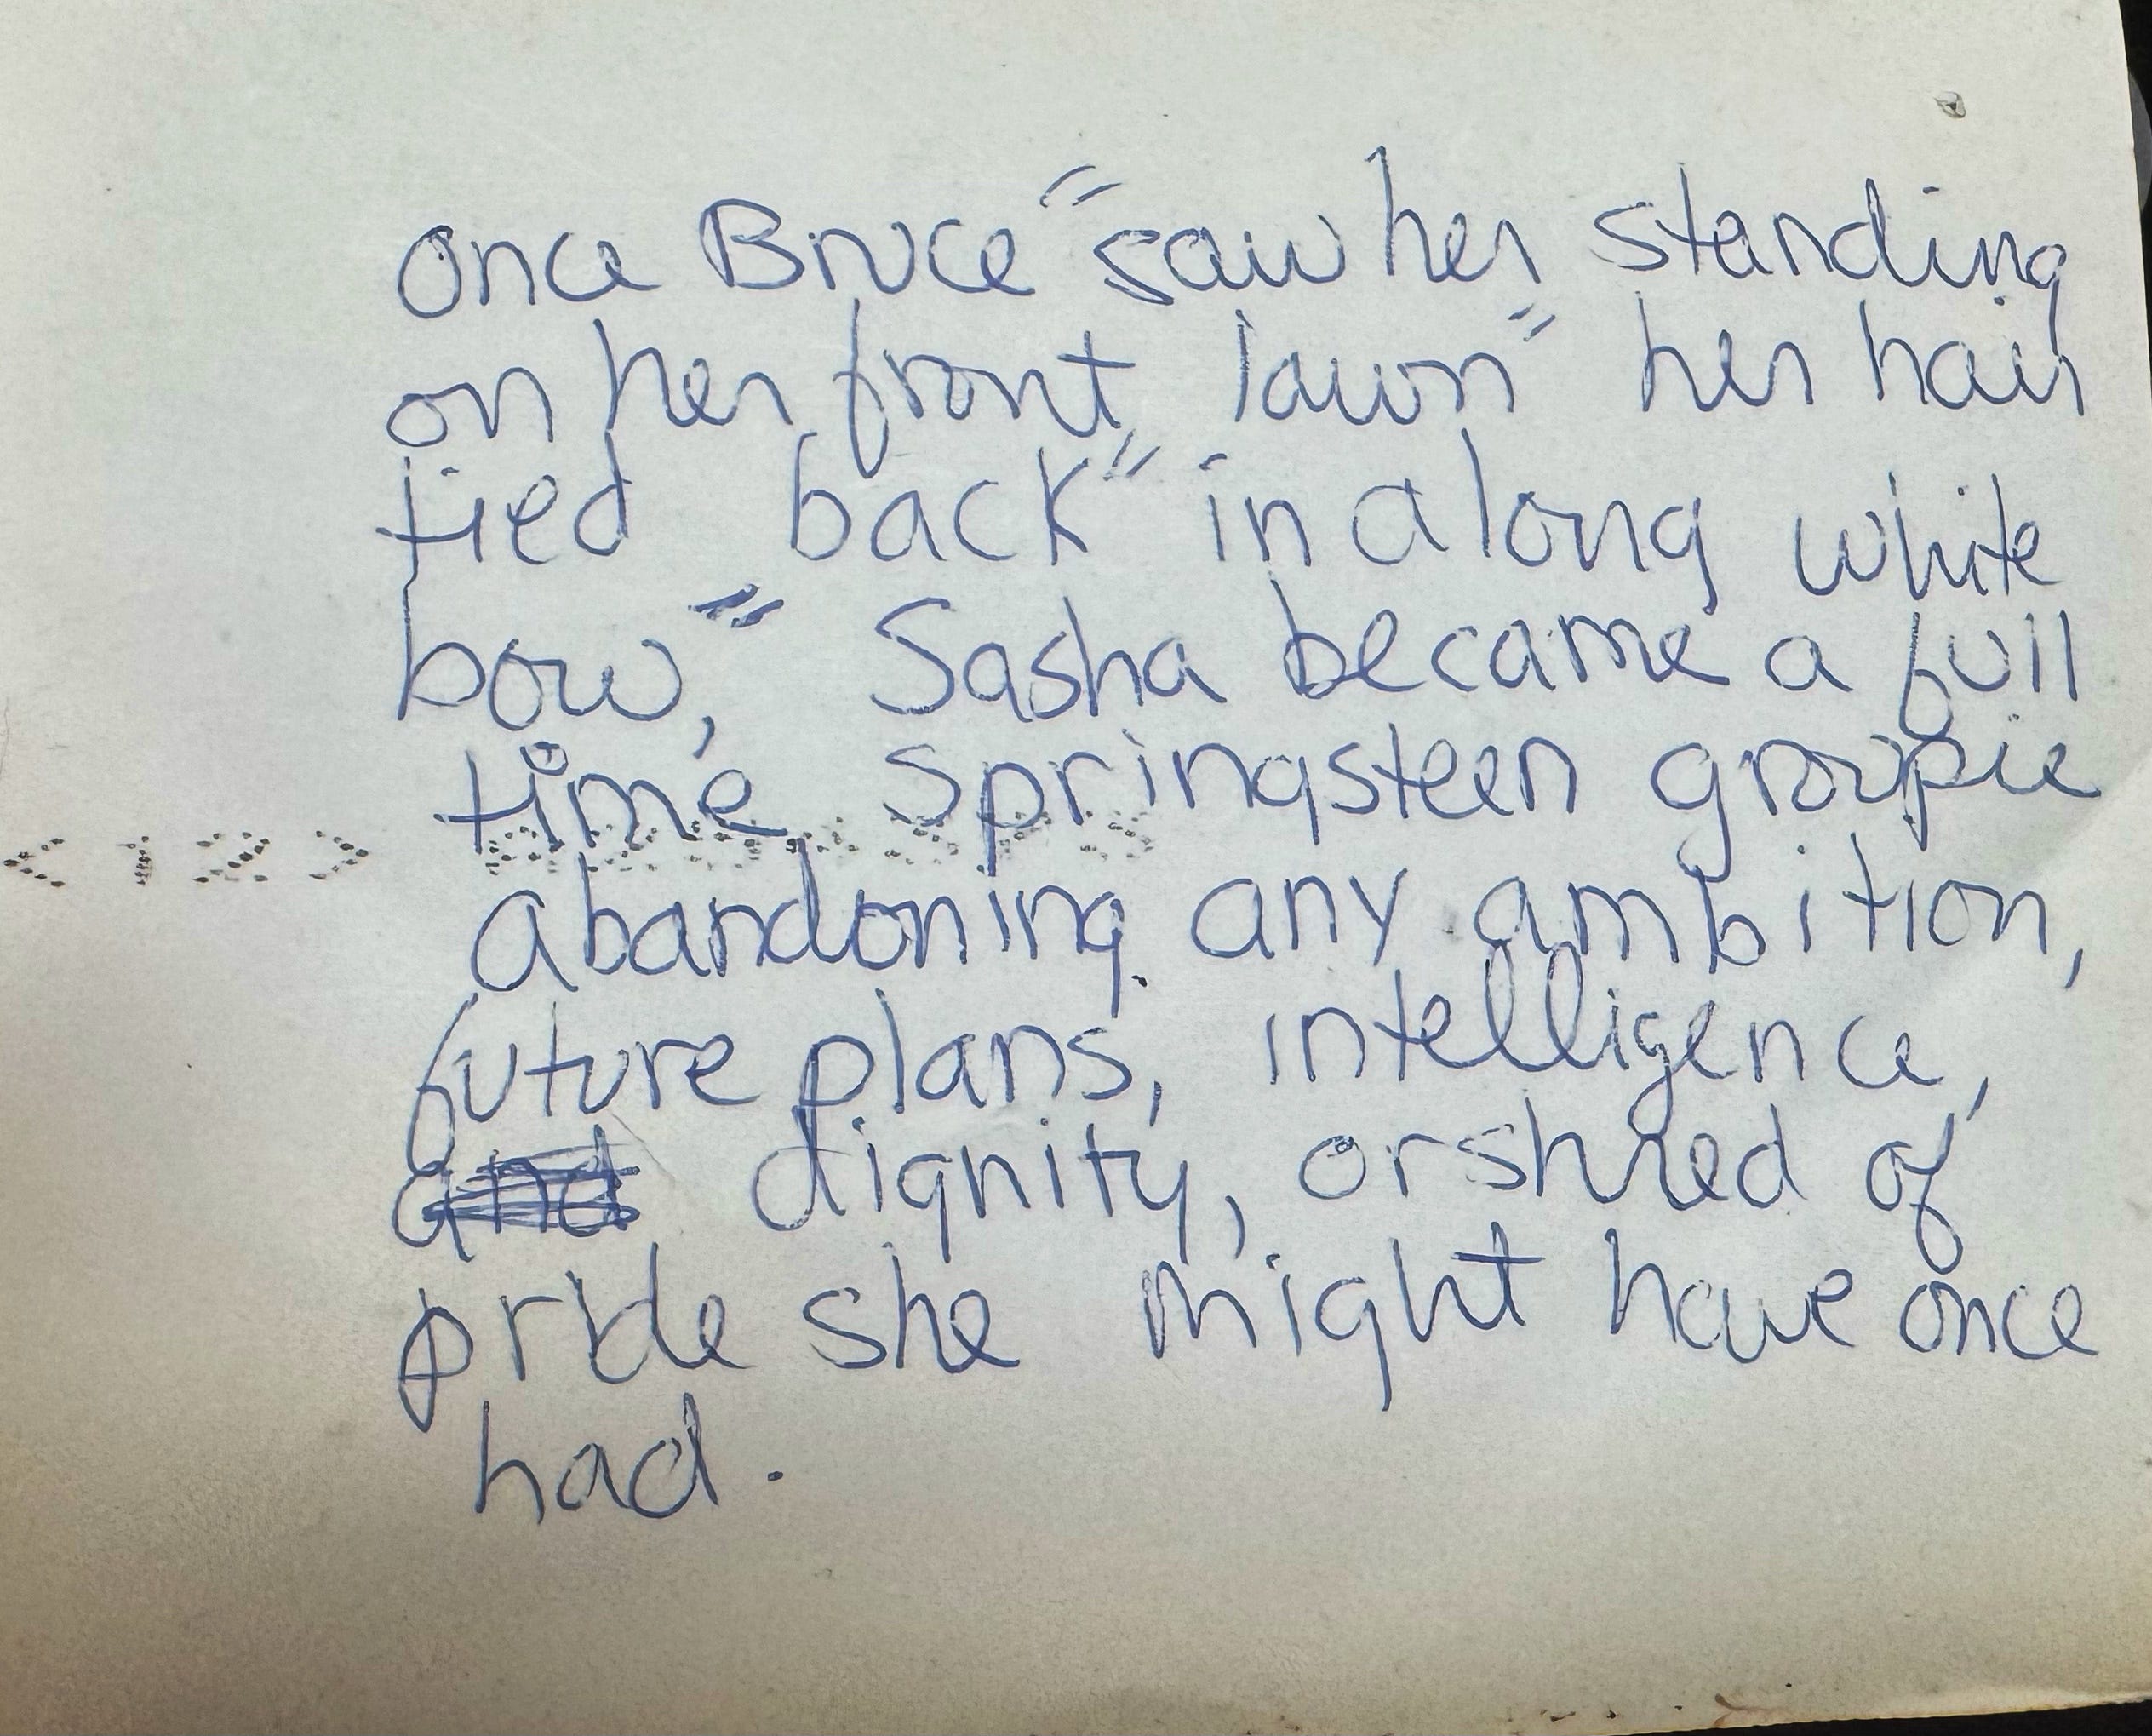 Once Bruce "saw her standing
on her front lawn" her hair
tied back" in a long white
bow," Sasha became a full
time Springsteen groupie
abandoning any ambition,
future plans, intelligence,
and dignity, or shred of
pride she might have once
had.